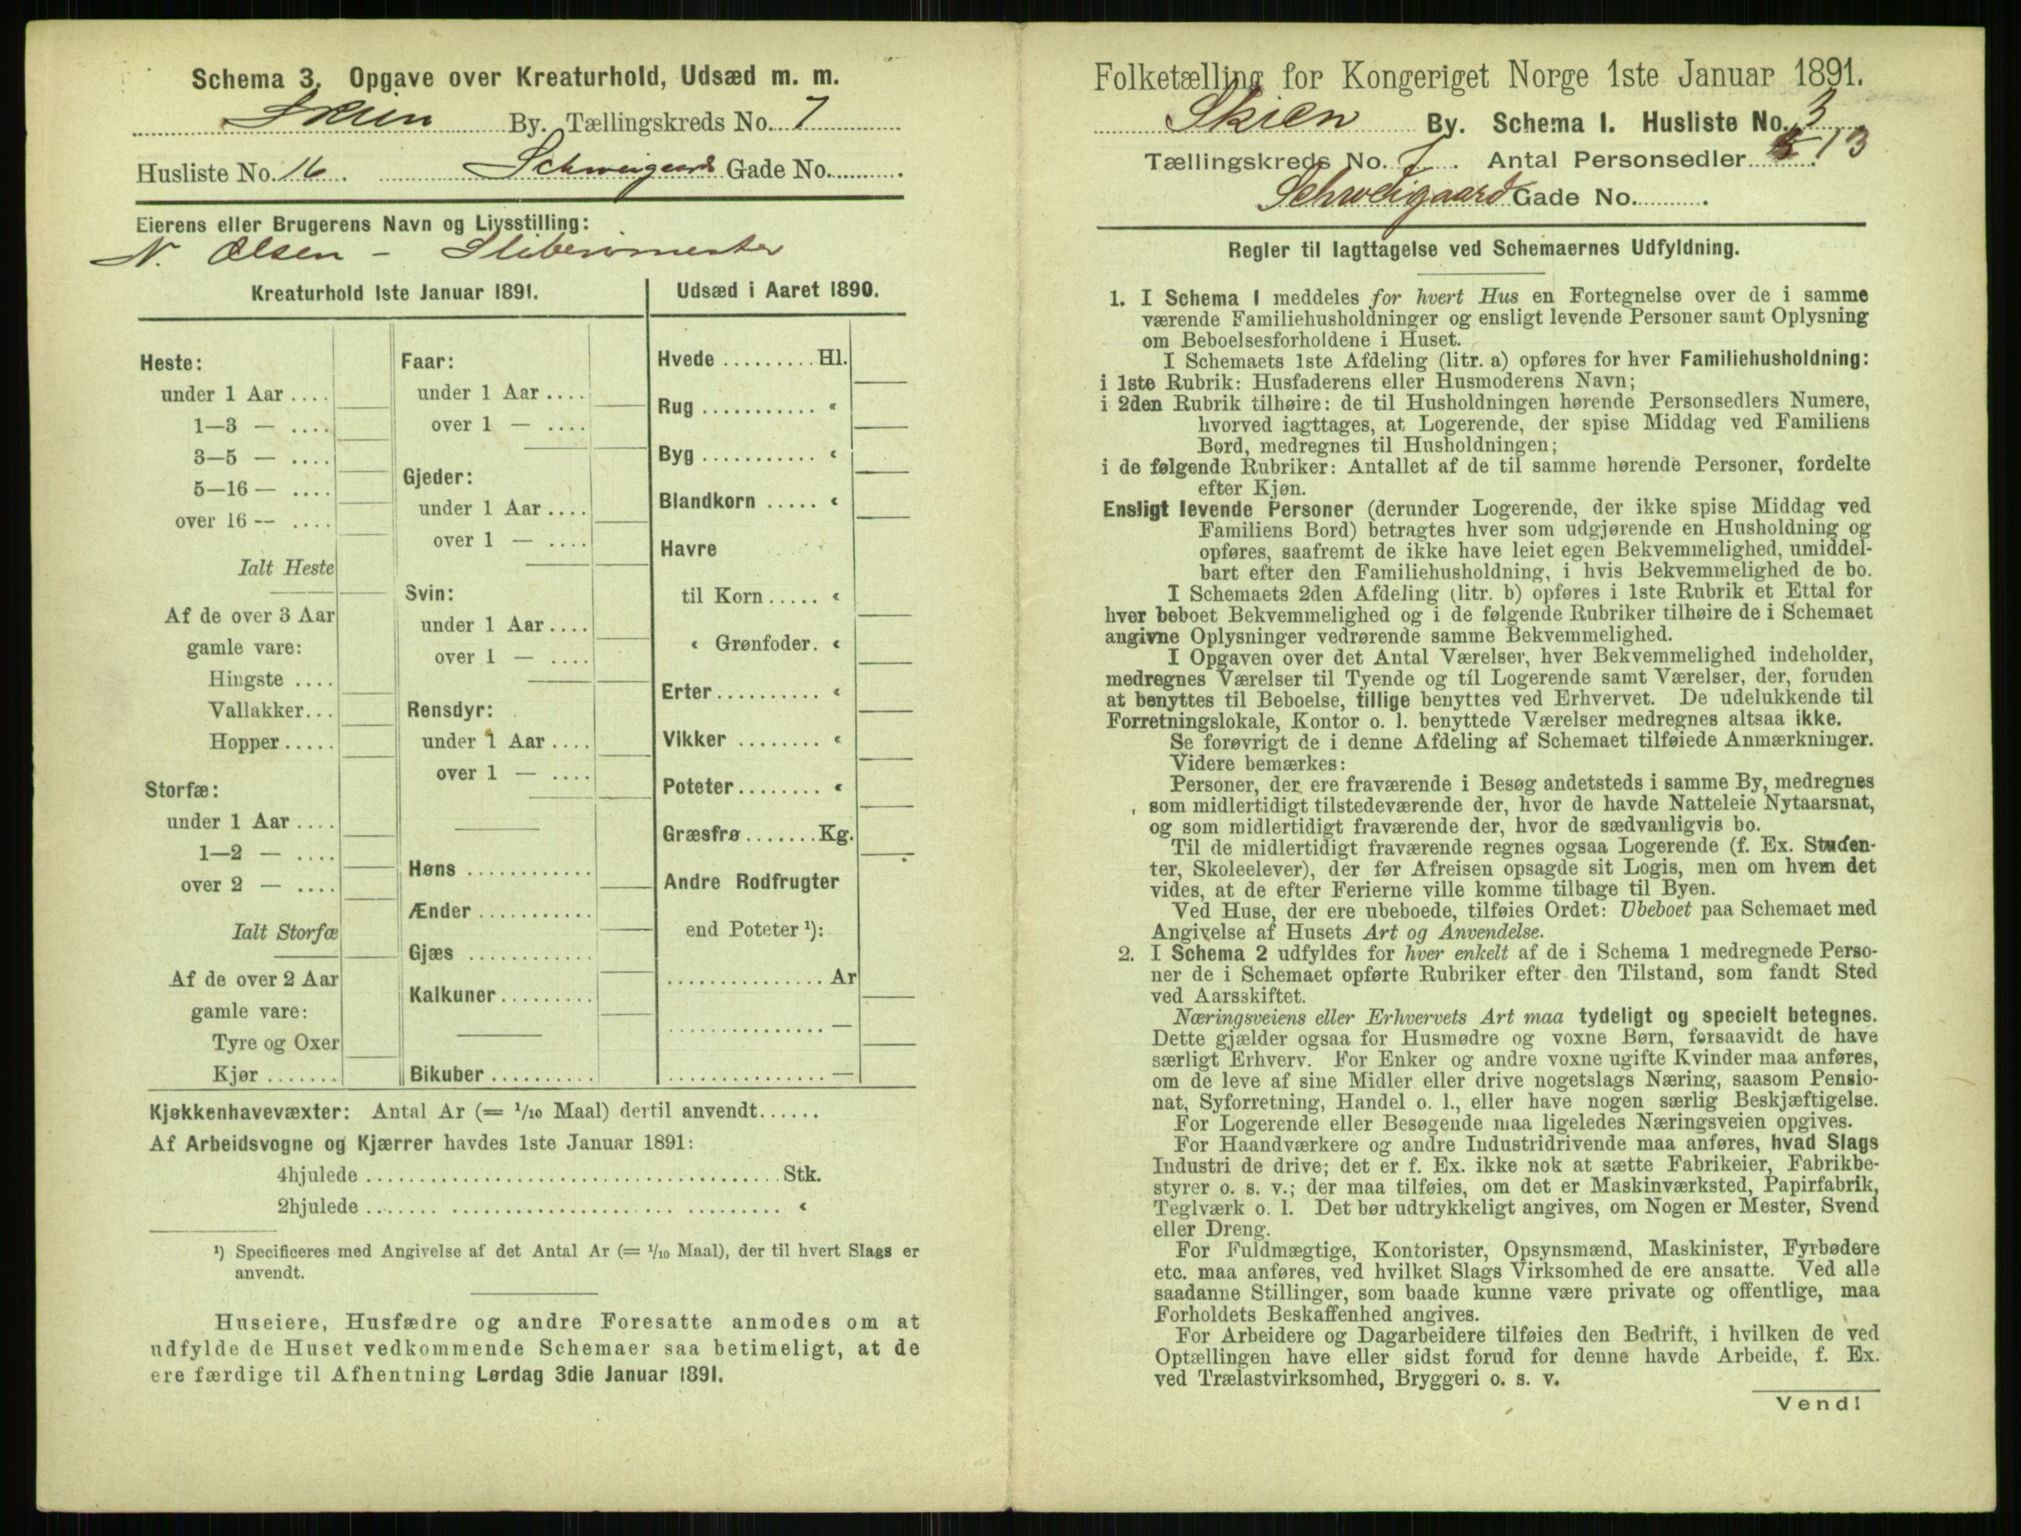 Schema 3. Opgave over Kreaturhold, Udsæd m. m.
Skien By. Tællingskreds No. 7
Husliste No. 16. Schweigaards Gade No.
Eierens eller Brugerens Navn og Livsstilling:
N. Olsen - Sliberimester
Kreaturhold 1ste Januar 1891.
Heste:
under 1 Aar ....
1—3 — ....
3—5 — ....
5—16 — ....
over 16 — ....
Ialt Heste
Af de over 3 Aar
gamle vare:
Hingste ....
Vallakker...
Hopper.....
Storfæ:
under 1 Aar ....
1—2 — ....
over 2 — ....
Ialt Storfæ
Af de over 2 Aar
gamle vare:
Tyre og Oxer
Kjør .......
Faar:
under 1 Aar ....
over 1 — ....
Gjeder:
under 1 Aar ....
over 1 — ....
Svin:
under 1 Aar ....
over 1 — ....
Rensdyr:
under 1 Aar ....
over 1 — ....
Høns ............
Ænder ...........
Gjæs ............
Kalkuner.........
Bikuber ..........
Udsæd i Aaret 1890.
Hvede ......... Hl.
Rug ........... «
Byg ........... «
Blandkorn ..... «
Havre
til Korn ..... «
« Grønfoder. «
Erter.......... «
Vikker ........ «
Poteter........ «
Græsfrø ....... Kg.
Andre Rodfrugter
end Poteter ¹):
............... Ar
............... —
............... —
Kjøkkenhavevæxter: Antal Ar (= 1/10 Maal) dertil anvendt......
Af Arbeidsvogne og Kjærrer havdes 1ste Januar 1891:
4hjulede ....................................... Stk.
2hjulede ....................................... «
¹) Specificeres med Angivelse af det Antal Ar (= 1/10 Maal), der til hvert Slags er
anvendt.
Huseiere, Husfædre og andre Foresatte anmodes om at
udfylde de Huset vedkommende Schemaer saa betimeligt, at de
ere færdige til Afhentning Lørdag 3die Januar 1891.
Folketælling for Kongeriget Norge 1ste Januar 1891.
Skien By. Schema I. Husliste No. 3
Tællingskreds No. 7. Antal Personsedler 13
Schweigaard Gade No.
Regler til Iagttagelse ved Schemaernes Udfyldning.
1. I Schema I meddeles for hvert Hus en Fortegnelse over de i samme
værende Familiehusholdninger og ensligt levende Personer samt Oplysning
om Beboelsesforholdene i Huset.
I Schemaets 1ste Afdeling (litr. a) opføres for hver Familiehusholdning:
i 1ste Rubrik: Husfaderens eller Husmoderens Navn;
i 2den Rubrik tilhøire: de til Husholdningen hørende Personsedlers Numere,
hvorved iagttages, at Logerende, der spise Middag ved Familiens
Bord, medregnes til Husholdningen;
i de følgende Rubriker: Antallet af de til samme hørende Personer, fordelte
efter Kjøn.
Ensligt levende Personer (derunder Logerende, der ikke spise Middag ved
Familiens Bord) betragtes hver som udgjørende en Husholdning og
opføres, saafremt de ikke have leiet egen Bekvemmelighed, umiddel-
bart efter den Familiehusholdning, i hvis Bekvemmelighed de bo.
I Schemaets 2den Afdeling (litr. b) opføres i 1ste Rubrik et Ettal for
hver beboet Bekvemmelighed og i de følgende Rubriker tilhøire de i Schemaet
angivne Oplysninger vedrørende samme Bekvemmelighed.
I Opgaven over det Antal Værelser, hver Bekvemmelighed indeholder,
medregnes Værelser til Tyende og til Logerende samt Værelser, der, foruden
at benyttes til Beboelse, tillige benyttes ved Erhvervet. De udelukkende til
Forretningslokale, Kontor o. l. benyttede Værelser medregnes altsaa ikke.
Se forøvrigt de i denne Afdeling af Schemaet tilføiede Anmærkninger.
Videre bemærkes:
Personer, der ere fraværende i Besøg andetsteds i samme By, medregnes
som midlertidigt tilstedeværende der, hvor de havde Natteleie Nytaarsnat,
og som midlertidigt fraværende der, hvor de sædvanligvis bo.
Til de midlertidigt fraværende regnes ogsaa Logerende (f. Ex. Studen-
ter, Skoleelever), der før Afreisen opsagde sit Logis, men om hvem det
vides, at de efter Ferierne ville komme tilbage til Byen.
Ved Huse, der ere ubeboede, tilføies Ordet: Ubeboet paa Schemaet med
Angivelse af Husets Art og Anvendelse.
2. I Schema 2 udfyldes for hver enkelt af de i Schema 1 medregnede Perso-
ner de i Schemaet opførte Rubriker efter den Tilstand, som fandt Sted
ved Aarsskiftet.
Næringsveiens eller Erhvervets Art maa tydeligt og specielt betegnes.
Dette gjælder ogsaa for Husmødre og voxne Børn, forsaavidt de have
særligt Erhverv. For Enker og andre voxne ugifte Kvinder maa anføres,
om de leve af sine Midler eller drive nogetslags Næring, saasom Pensio-
nat, Syforretning, Handel o. l., eller have nogen særlig Beskjæftigelse.
For Logerende eller Besøgende maa ligeledes Næringsveien opgives.
For Haandværkere og andre Industridrivende maa anføres, hvad Slags
Industri de drive; det er f. Ex. ikke nok at sætte Fabrikeier, Fabrikbe-
styrer o. s. v.; der maa tilføies, om det er Maskinværksted, Papirfabrik,
Teglværk o. l. Det bør udtrykkeligt angives, om Nogen er Mester, Svend
eller Dreng.
For Fuldmægtige, Kontorister, Opsynsmænd, Maskinister, Fyrbødere
etc. maa anføres, ved hvilket Slags Virksomhed de ere ansatte. Ved alle
saadanne Stillinger, som baade kunne være private og offentlige, maa
Forholdets Beskaffenhed angives.
For Arbeidere og Dagarbeidere tilføies den Bedrift, i hvilken de ved
Optællingen have eller sidst forud for denne havde Arbeide, f. Ex.
ved Trælastvirksomhed, Bryggeri o. s. v.
Vend!